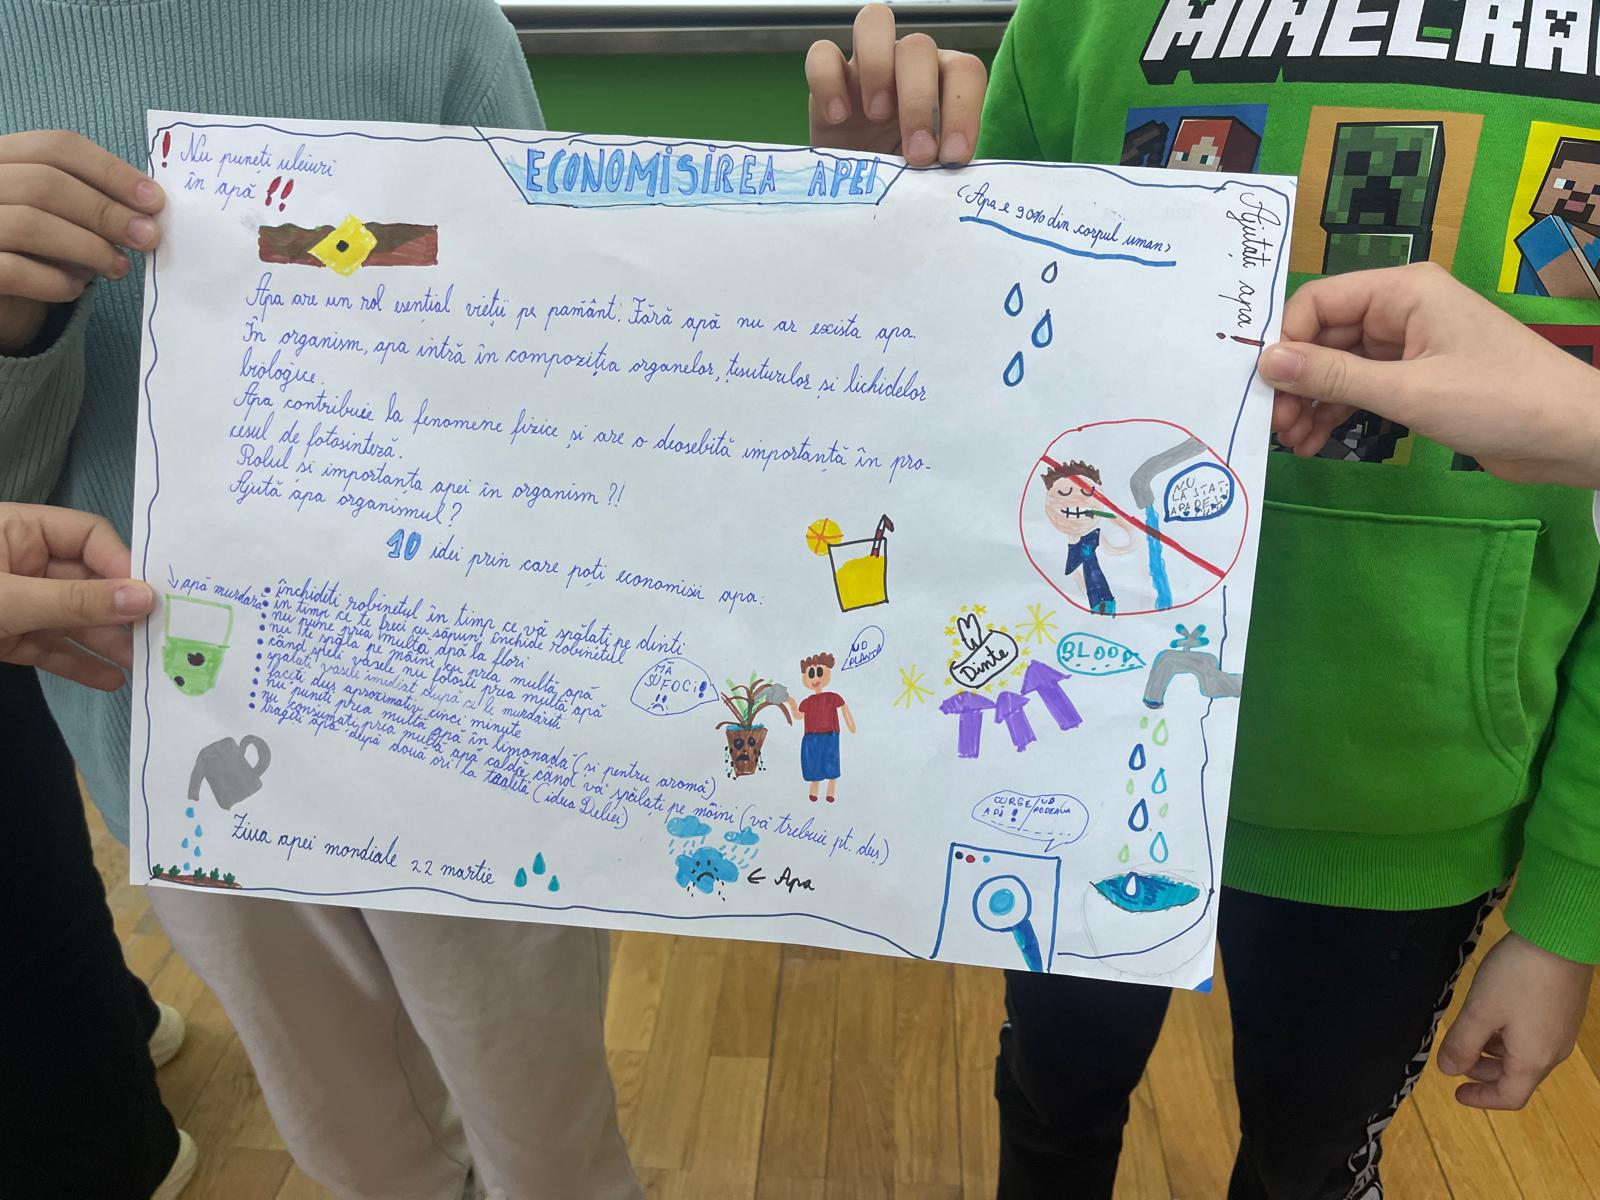 ! Nu puneți uleiuri
în apă !!
ECONOMISIREA APEI
(Apa e 90% din corpul uman)
Ajutați apa!
MINECRA
Apa are un rol esențial vieții pe pamânt. Fără apă nu ar exista apa.
În organism, apa intră în compoziția organelor, țesuturilor și lichidelor
biologice.
Apa contribuie la fenomene fizice și are o deosebită importanță în pro-
cesul de fotosinteză.
Rolul si importanța apei în organism?!
Ajută apa organismul?
10 idei prin care poți economisi apa:
apă murdară
• închiditi robinetul în timp ce vă spălați pe dinti
• în timp ce te freci cu săpun, închide robinetul
• nu pune prea multa apă la flori
• nu te spăla pe mâini cu prea multă apă
• când speli vasele nu folosti prea multă apă
• spalati vasele imediat după ce le murdăriti
• faceti duș aproximativ cinci minute
• nu puneti prea multă apă în limonadă (si pentru aromă)
• nu consumati prea multă apă caldă când vă spălati pe mâini (vă trebuie pt. duș)
• trageti apa după două ori la toaletă (idea Deliei)
NU
LA STAT
APA DE
MĂ
SUFOCI!
UD
PLANTA
Dinte
BLOOP
CURGE
APĂ!
UD
PODEAUA
Ziua apei mondiale 22 martie
← Apa